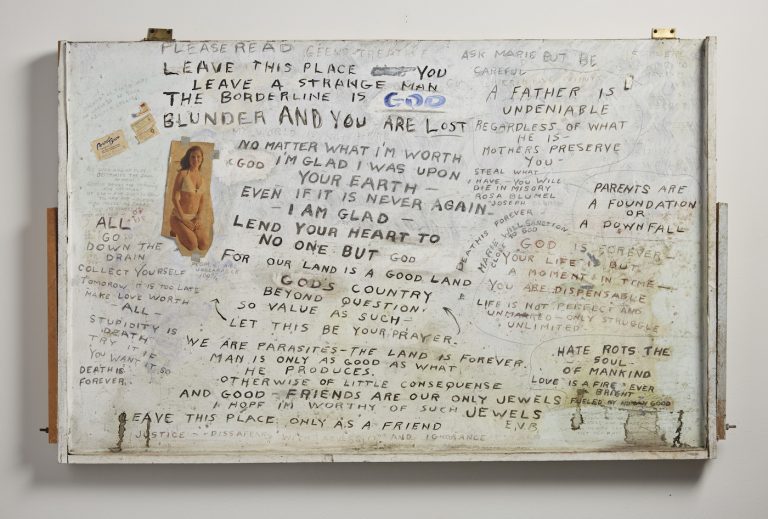 PLEASE READ
LEAVE THIS PLACE YOU
LEAVE A STRANGE MAN
THE BORDERLINE IS GOD
BLUNDER AND YOU ARE LOST
NO MATTER WHAT I'M WORTH
GOD I'M GLAD I WAS UPON
YOUR EARTH —
EVEN IF IT IS NEVER AGAIN—
— I AM GLAD —
LEND YOUR HEART TO
NO ONE BUT GOD
FOR OUR LAND IS A GOOD LAND
GOD'S COUNTRY
BEYOND QUESTION
SO VALUE AS SUCH—
LET THIS BE YOUR PRAYER.
WE ARE PARASITES—THE LAND IS FOREVER.
MAN IS ONLY AS GOOD AS WHAT
HE PRODUCES.
OTHERWISE OF LITTLE CONSEQUENSE
AND GOOD FRIENDS ARE OUR ONLY JEWELS
I HOPE I'M WORTHY OF SUCH JEWELS
LEAVE THIS PLACE ONLY AS A FRIEND
E.V.B.
JUSTICE — AND IGNORANCE
ALL
GO
DOWN THE
DRAIN
COLLECT YOURSELF
TOMOROW IT IS TOO LATE
MAKE LOVE WORTH
— ALL —
STUPIDITY IS
DEATH
TRY IT IF
YOU WANT IT SO
DEATH IS
FOREVER.
ASK MARIE BUT BE
CAREFUL
A FATHER IS
UNDENIABLE
REGARDLESS OF WHAT
HE IS—
MOTHERS PRESERVE
YOU—
STEAL WHAT
I HAVE—YOU WILL
DIE IN MISORY
ROSA BLUMEL
JOSEPH
PARENTS ARE
A FOUNDATION
OR
A DOWNFALL
DEATH IS FOREVER
MARIE WILL SANCTION
CLOSE TO GOD
GOD IS FOREVER—
YOUR LIFE IS BUT
A MOMENT IN TIME—
YOU ARE DISPENSABLE
LIFE IS NOT PERFECT AND
UNMARRED—ONLY STRUGGLE
UNLIMITED
HATE ROTS THE
SOUL
OF MANKIND
LOVE IS A FIRE EVER
BRIGHT
FUELED BY HUMAN GOOD